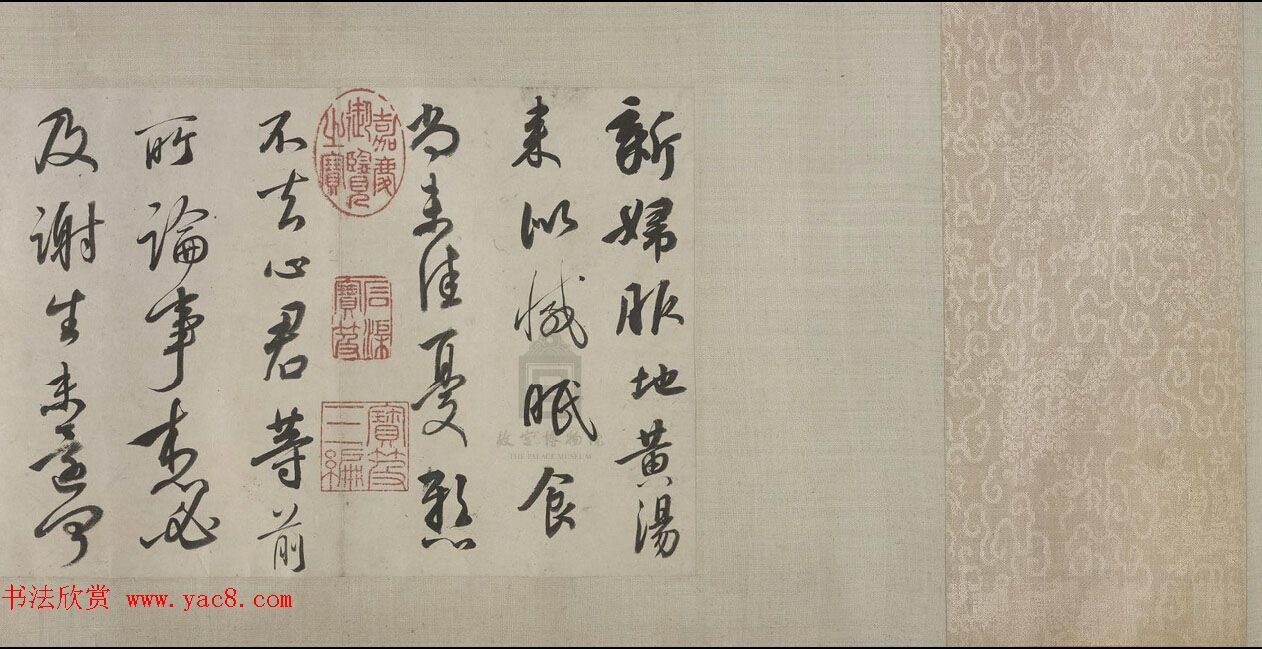 新婦服地黃湯
來似減眠食
尚未佳憂懸
不去心君等前
所論事想必
及謝生未還何
嘉慶
御覽
之寶
石渠
寶笈
寶笈
三編
故宮博物院
THE PALACE MUSEUM
书法欣赏 www.yac8.com